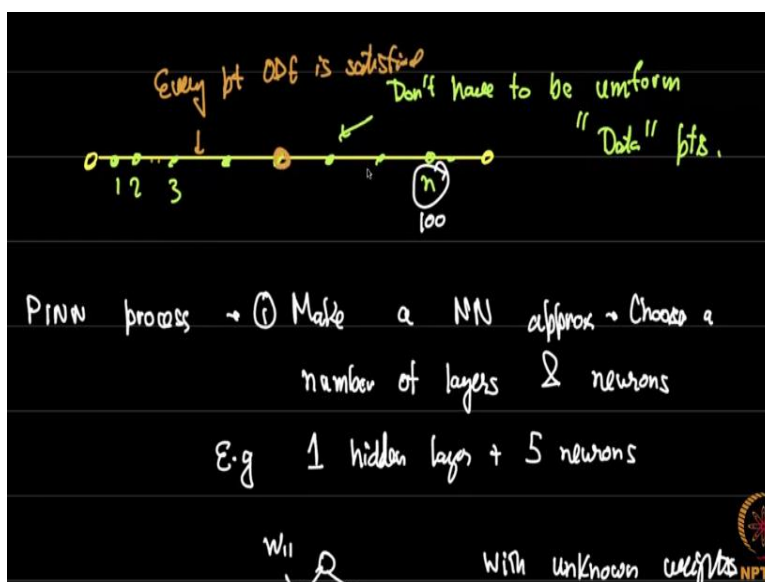 Every pt ODE is satisfied
Don't have to be uniform
"Data" pts.
1 2 3 n
100
PINN process → ① Make a NN approx → Choose a
number of layers & neurons
E.g 1 hidden layer + 5 neurons
W11
With unknown weights
NPT